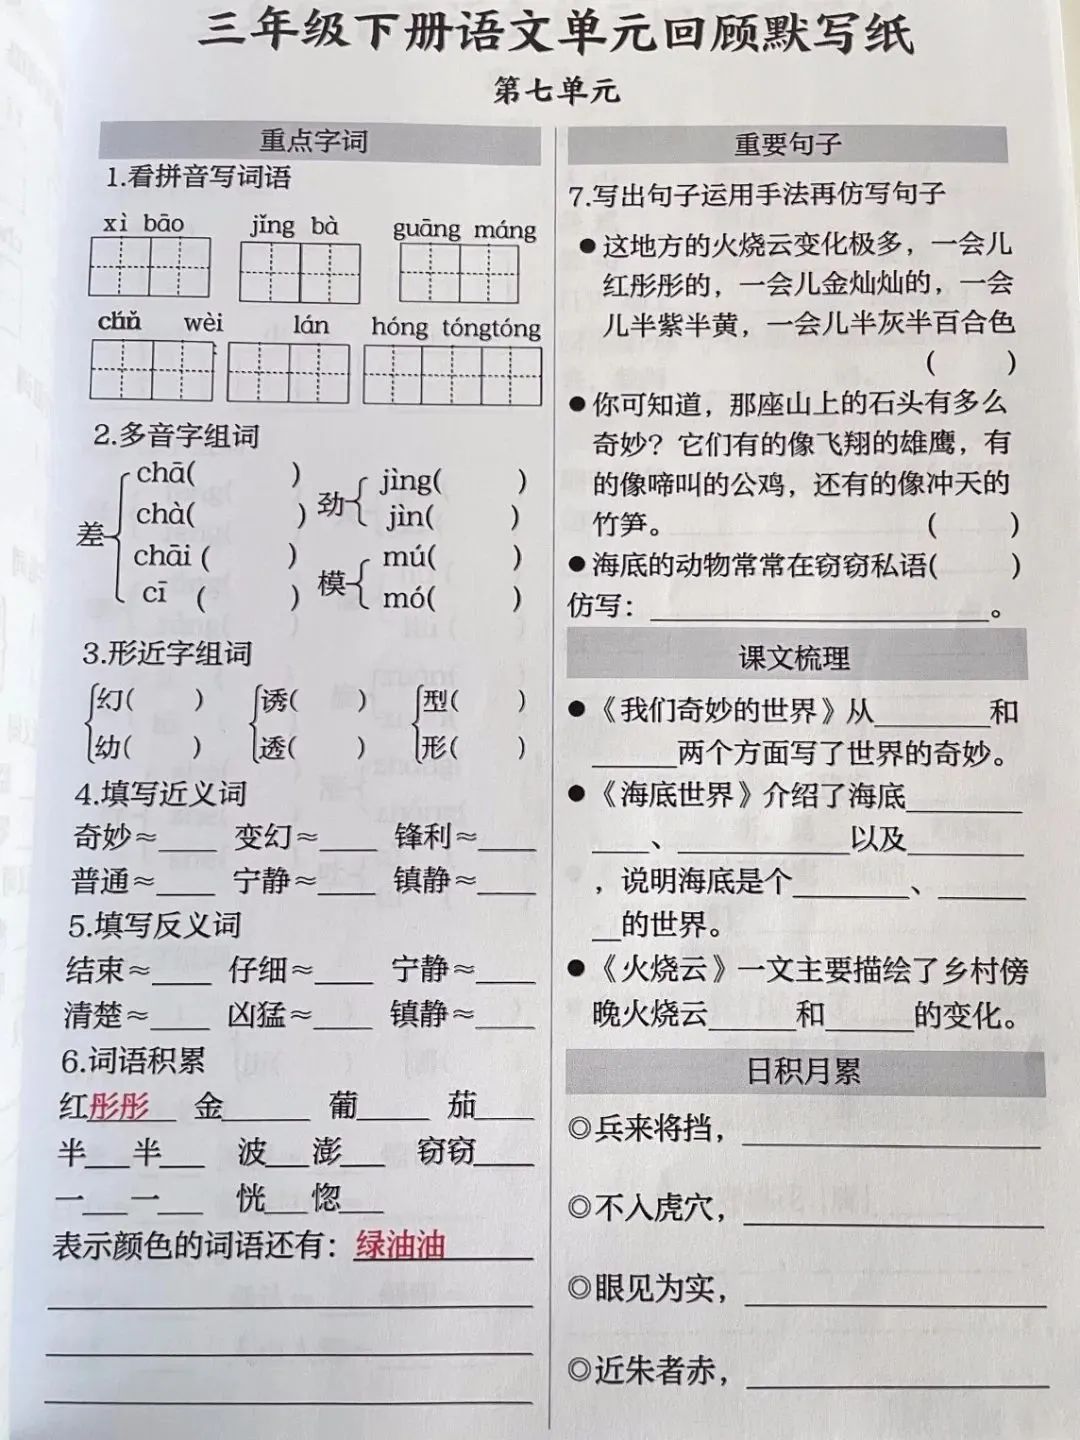 三年级下册语文单元回顾默写纸
第七单元
重点字词
1.看拼音写词语
xì bāo jǐng bà guāng máng
wèi lán hóng tóngtóng
2.多音字组词
差
chā( )
chà( )
chāi ( )
cī ( )
劲
jìng( )
jìn( )
模
mú( )
mó( )
3.形近字组词
幻( ) 诱( ) 型( )
幼( ) 透( ) 形( )
4.填写近义词
奇妙≈____ 变幻≈____ 锋利≈____
普通≈____ 宁静≈____ 镇静≈____
5.填写反义词
结束≈____ 仔细≈____ 宁静≈____
清楚≈____ 凶猛≈____ 镇静≈____
6.词语积累
红彤彤 金______ 葡_____ 茄____
半___半___ 波___澎___ 窃窃____
一___一___ 恍___惚___
表示颜色的词语还有：绿油油
重要句子
7.写出句子运用手法再仿写句子
●这地方的火烧云变化极多，一会儿
红彤彤的，一会儿金灿灿的，一会
儿半紫半黄，一会儿半灰半百合色
( )
●你可知道，那座山上的石头有多么
奇妙？它们有的像飞翔的雄鹰，有
的像啼叫的公鸡，还有的像冲天的
竹笋。 ( )
●海底的动物常常在窃窃私语( )
仿写：______________________。
课文梳理
●《我们奇妙的世界》从________和
______两个方面写了世界的奇妙。
●《海底世界》介绍了海底________
____、____________以及________
，说明海底是个________、______
__的世界。
●《火烧云》一文主要描绘了乡村傍
晚火烧云______和______的变化。
日积月累
◎兵来将挡，____________________
◎不入虎穴，____________________
◎眼见为实，____________________
◎近朱者赤，____________________